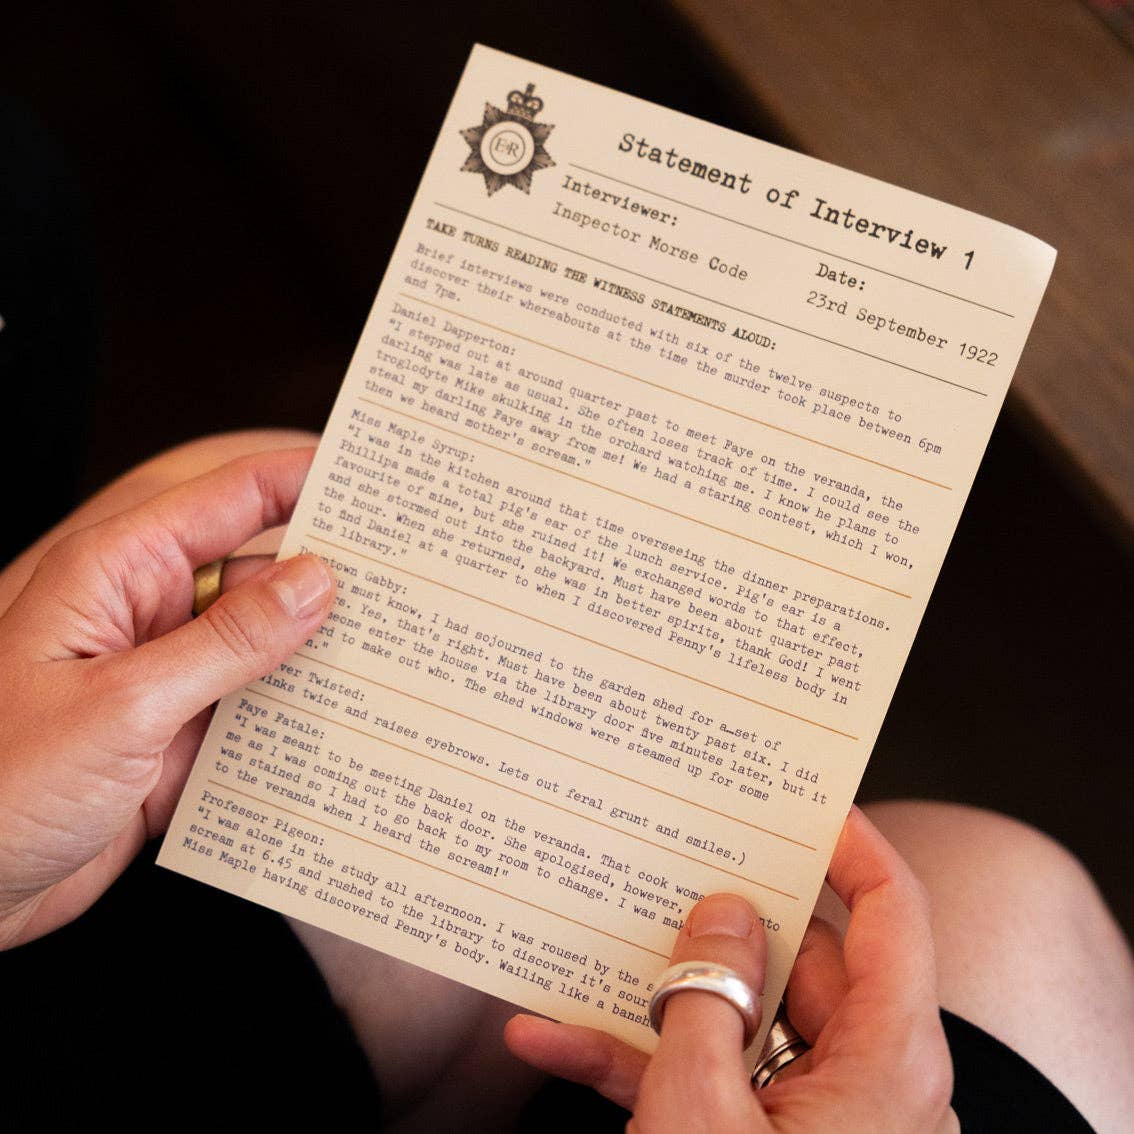 E R
Statement of Interview 1
Interviewer:
Inspector Morse Code
Date:
23rd September 1922
TAKE TURNS READING THE WITNESS STATEMENTS ALOUD:
Brief interviews were conducted with six of the twelve suspects to
discover their whereabouts at the time the murder took place between 6pm
and 7pm.
Daniel Dapperton:
"I stepped out at around quarter past to meet Faye on the veranda, the
darling was late as usual. She often loses track of time. I could see the
troglodyte Mike skulking in the orchard watching me. I know he plans to
steal my darling Faye away from me! We had a staring contest, which I won,
then we heard mother's scream."
Miss Maple Syrup:
"I was in the kitchen around that time overseeing the dinner preparations.
Phillipa made a total pig's ear of the lunch service. Pig's ear is a
favourite of mine, but she ruined it! We exchanged words to that effect,
and she stormed out into the backyard. Must have been about quarter past
the hour. When she returned, she was in better spirits, thank God! I went
to find Daniel at a quarter to when I discovered Penny's lifeless body in
the library."
town Gabby:
must know, I had sojourned to the garden shed for a set of
Yes, that's right. Must have been about twenty past six. I did
enter the house via the library door five minutes later, but it
to make out who. The shed windows were steamed up for some
Twisted:
twice and raises eyebrows. Lets out feral grunt and smiles.)
Faye Fatale:
"I was meant to be meeting Daniel on the veranda. That cook
me as I was coming out the back door. She apologised, however,
was stained so I had to go back to my room to change. I was
to the veranda when I heard the scream!"
Professor Pigeon:
"I was alone in the study all afternoon. I was roused by the
scream at 6.45 and rushed to the library to discover it's
Miss Maple having discovered Penny's body. Wailing like a